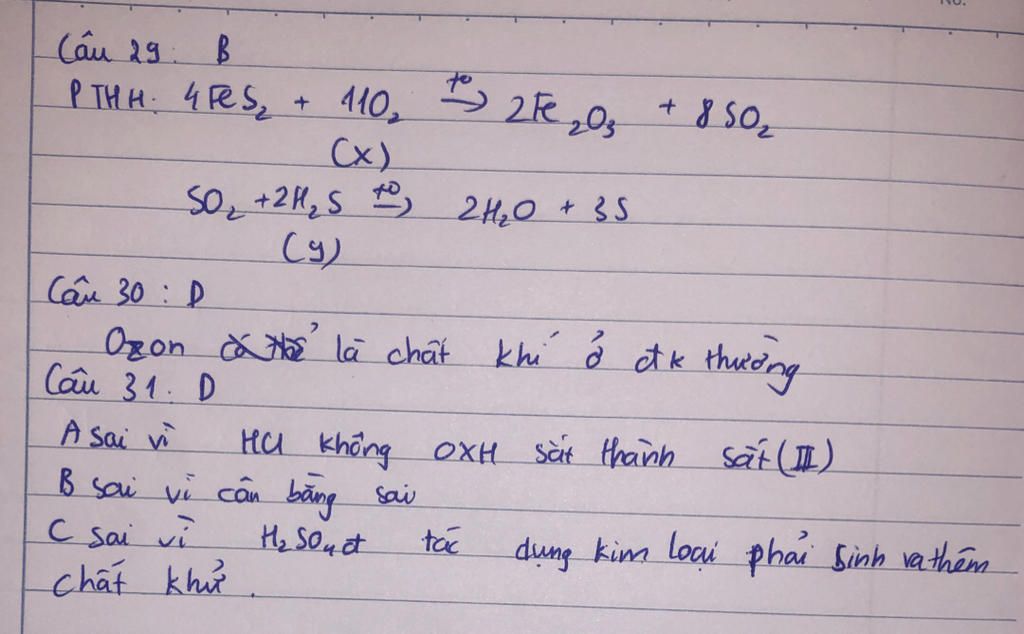 No.
Câu 29: B
PTHH: 4FeS₂ + 11O₂ →(t⁰) 2Fe₂O₃ + 8SO₂
(X)
SO₂ + 2H₂S →(t⁰) 2H₂O + 3S
(y)
Câu 30 : D
Ozon là chất khí ở đk thường
Câu 31. D
A sai vì HCl không OXH sắt thành sắt (III)
B sai vì cân bằng sai
C sai vì H₂SO₄đ tác dụng kim loại phải sinh ra thêm
chất khử.